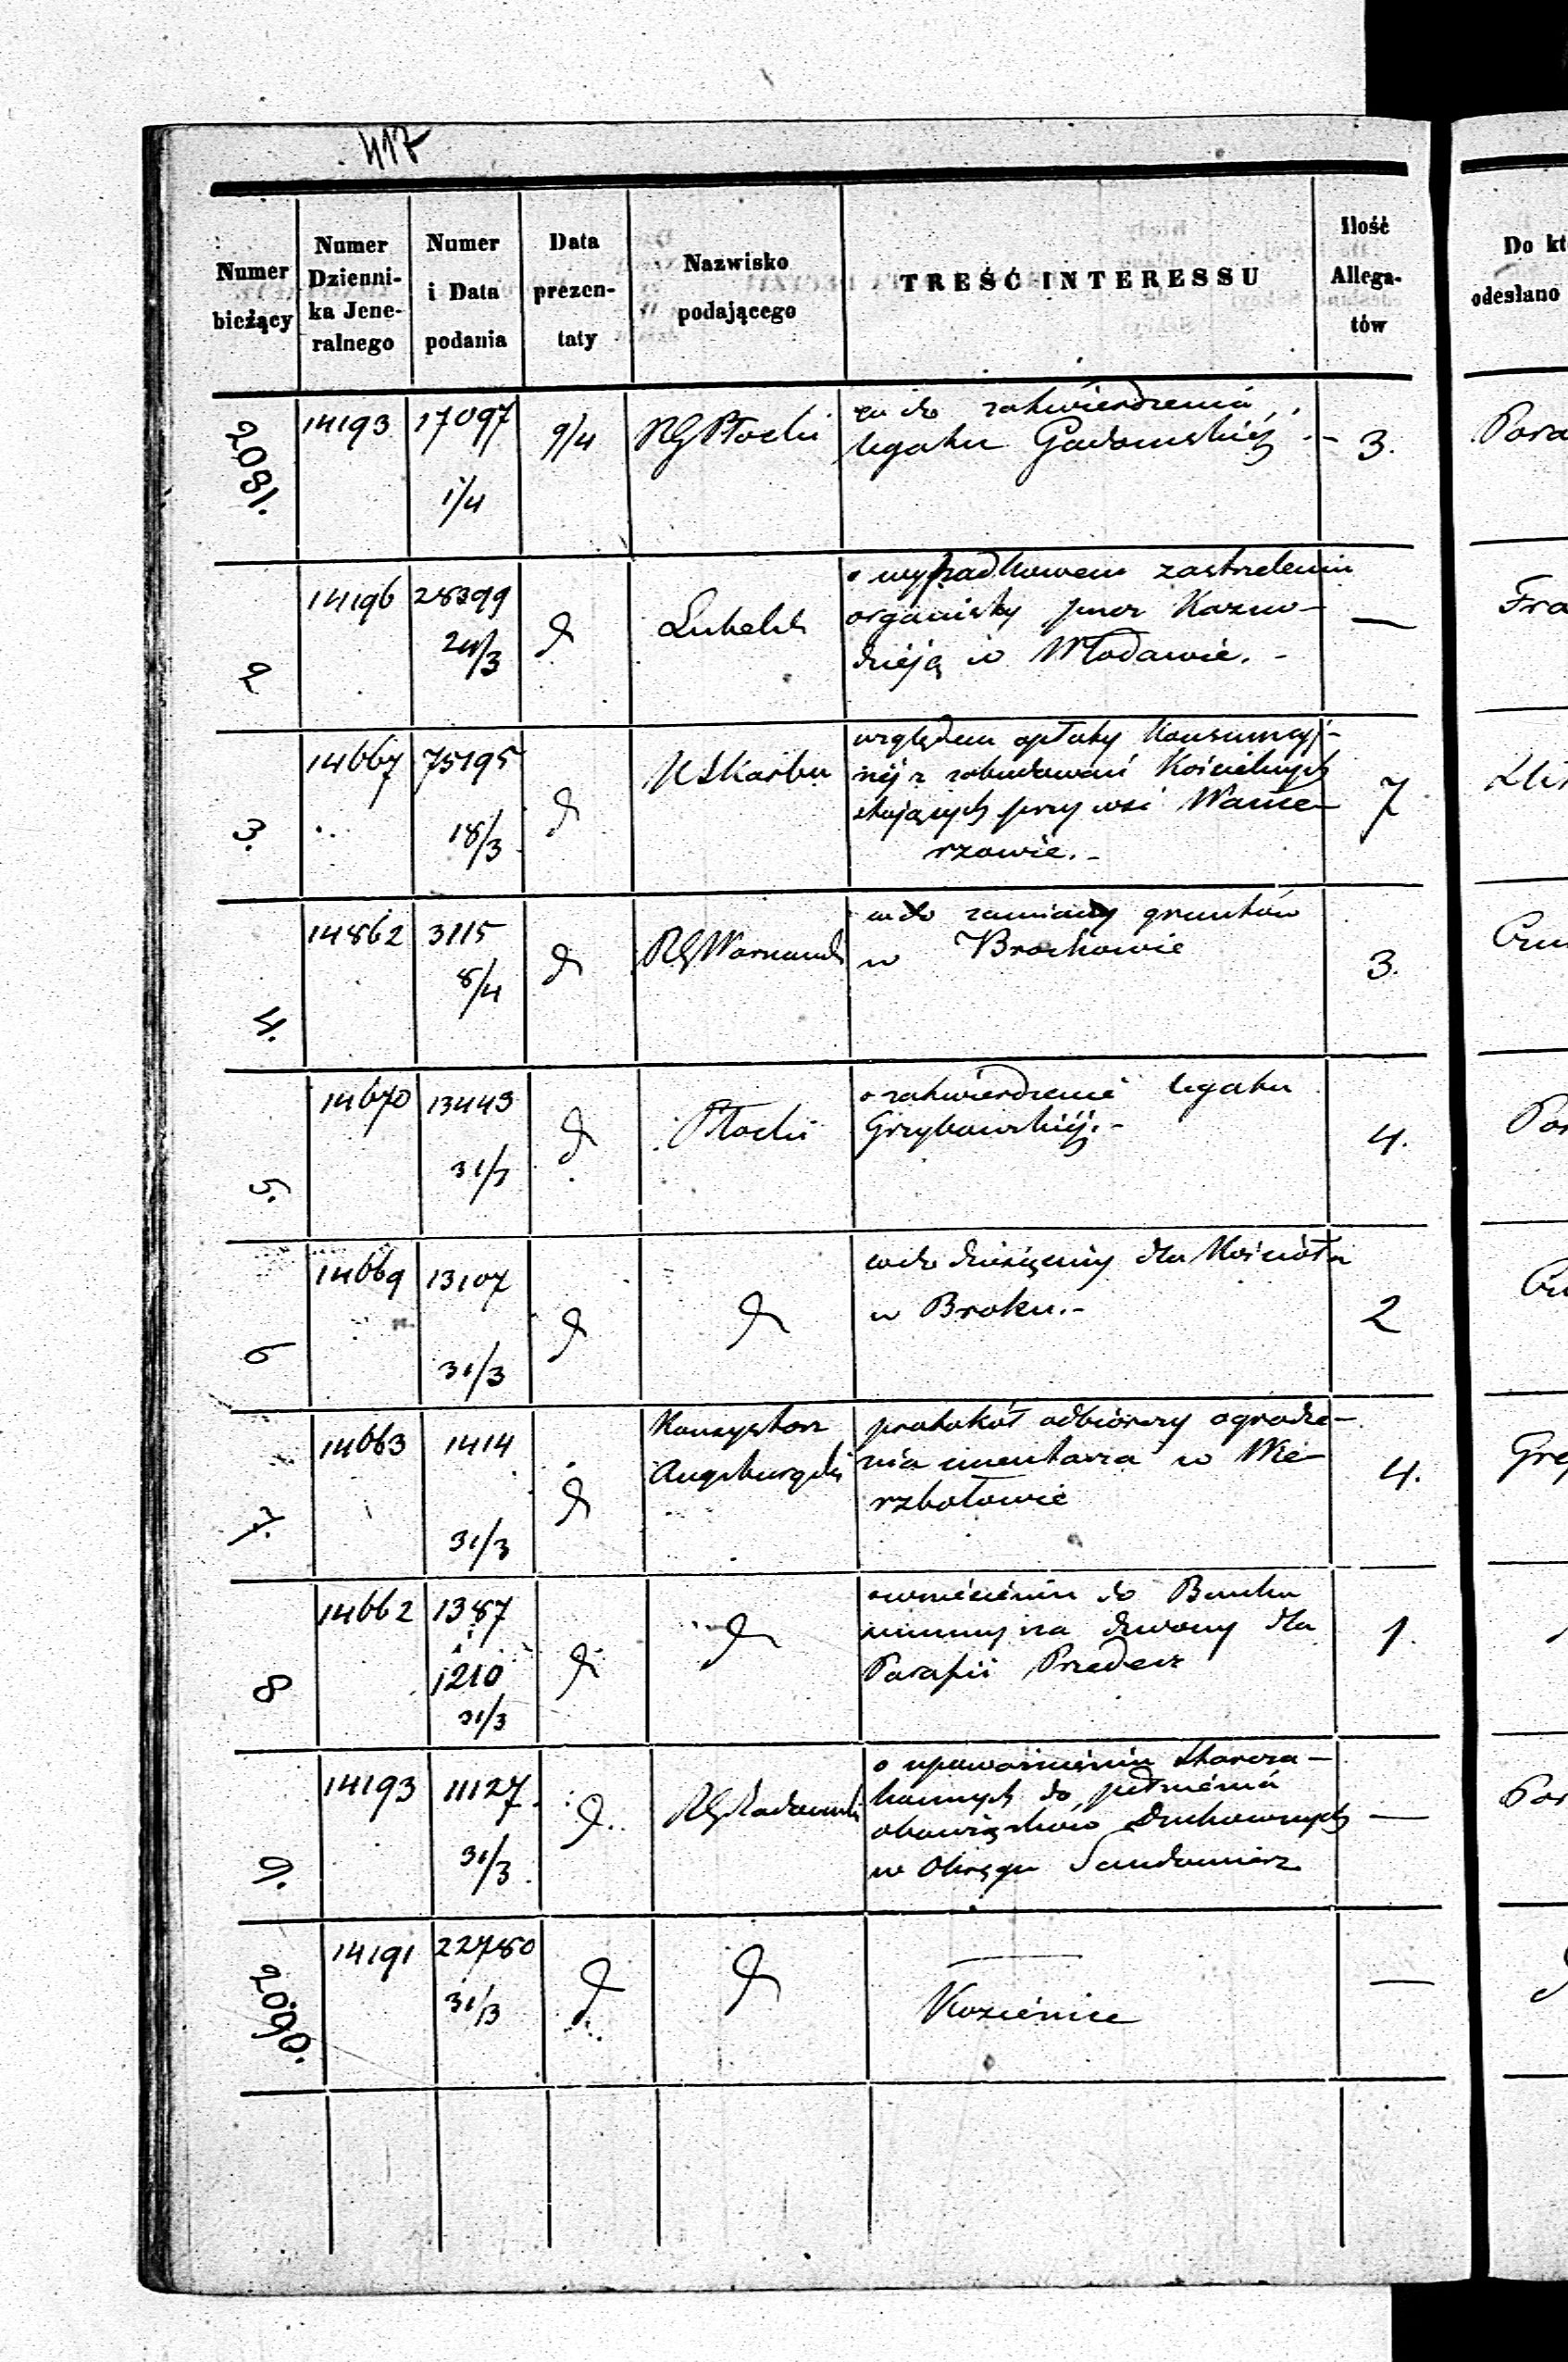 417
Numer bieżący
Numer Dzienni-ka Jene-ralnego
Numer i Data podania
Data prezen-taty
Nazwisko podającego
TREŚĆ INTERESSU
Ilość Allega-tów
Do kt
odesłano
2081. 14193 17097 1/4 9/4 RG Płocki
wdo zatwierdzenia
legatu Gadomskiéj .- 3.
2 14196 28399 24/3 d Lubelski
o wypadkowem zastrzeleniu
organisty przez Kazno-
dzieją w Włodawie. - —
3. 14667 75195 18/3 d K Skarbu
względem opłaty Konsumcyj-
néj z zabudowań Kościelnych
stojących przy wsi Wanie-
rzowie. - 7
4. 14862 3115 8/4 d RG Warszawski
wdo zamiany gruntów
w Brochowie 3.
5. 14670 13443 31/3 d Płocki
o zatwierdzenie legatu
Grzybowskiéj. - 4.
6 14669 13107 31/3 d d
wdo dziesięciny dla Kościoła
w Broku. - 2
7. 14663 1414 31/3 d Konsystorz
Augsburgski
protokół odbiorczy ogrodze-
nia cmentarza w Wie-
rzbołowie 4.
8 14662 1387 i 1210 31/3 d d
o wniesieniu do Banku
summy na dzwony dla
Parafii Przedecz 1.
9. 14193 11127 31/3 d RG Radomski
o upoważnieniu
do pełnienia
obowiązków Duchownych
w Okręgu Sandomierz —
2090. 14191 22780 31/3 d d
—
Kozienice —